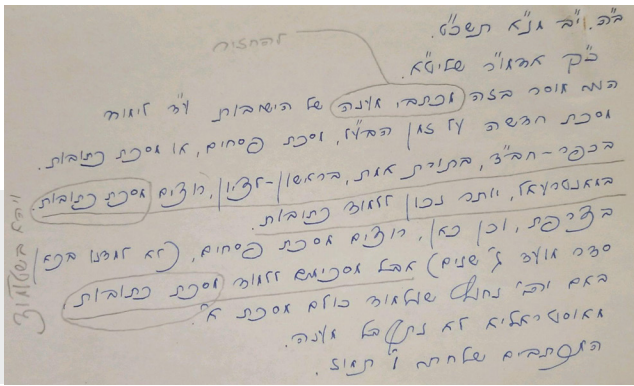 ב"ה. י"ב מנ"א תשכ"ט.
כ"ק אדמו"ר שליט"א.
להחזיר
מוסר בזה מכתבי מענה של הישיבות ע"ד לימוד
מסכת חדשה על זמן הבע"ל, מסכת פסחים, או מסכת כתובות.
בכפר-חב"ד, בתורת אמת, בראשון-לציון, רוצים מסכת כתובות
במאנטרעאל, יותר נכון ללמוד כתובות.
בצרפת, וכן כאן, רוצים מסכת פסחים, (לא למדנו בכאן
סדר מועד ג' שנים) אבל מסכימים ללמוד מסכת כתובות
באם יהי' נחוץ כולם מסכת א'.
מאוסטראליא לא נתקבל מענה.
המכתבים שלחתי ו' תמוז.
ויהא